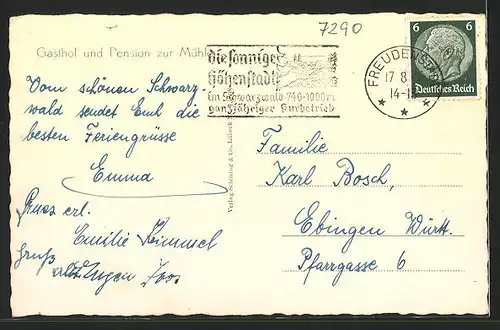 7290
Gasthof und Pension zur Mühle
die sonnige
Höhenstadt
im Schwarzwald 740-1000 m
ganzjähriger Kurbetrieb
FREUDENSTADT
17 8
14-1
6 6
Deutsches Reich
Vom schönen Schwarz-
wald sendet Euch die
besten Feriengrüsse
Emma
Gruss erl.
Emilie Kimmel
Gruß
Eugen Joos
Verlag Schöning & Co., Lübeck
Familie
Karl Bosch,
Ebingen Württ.
Pfarrgasse 6